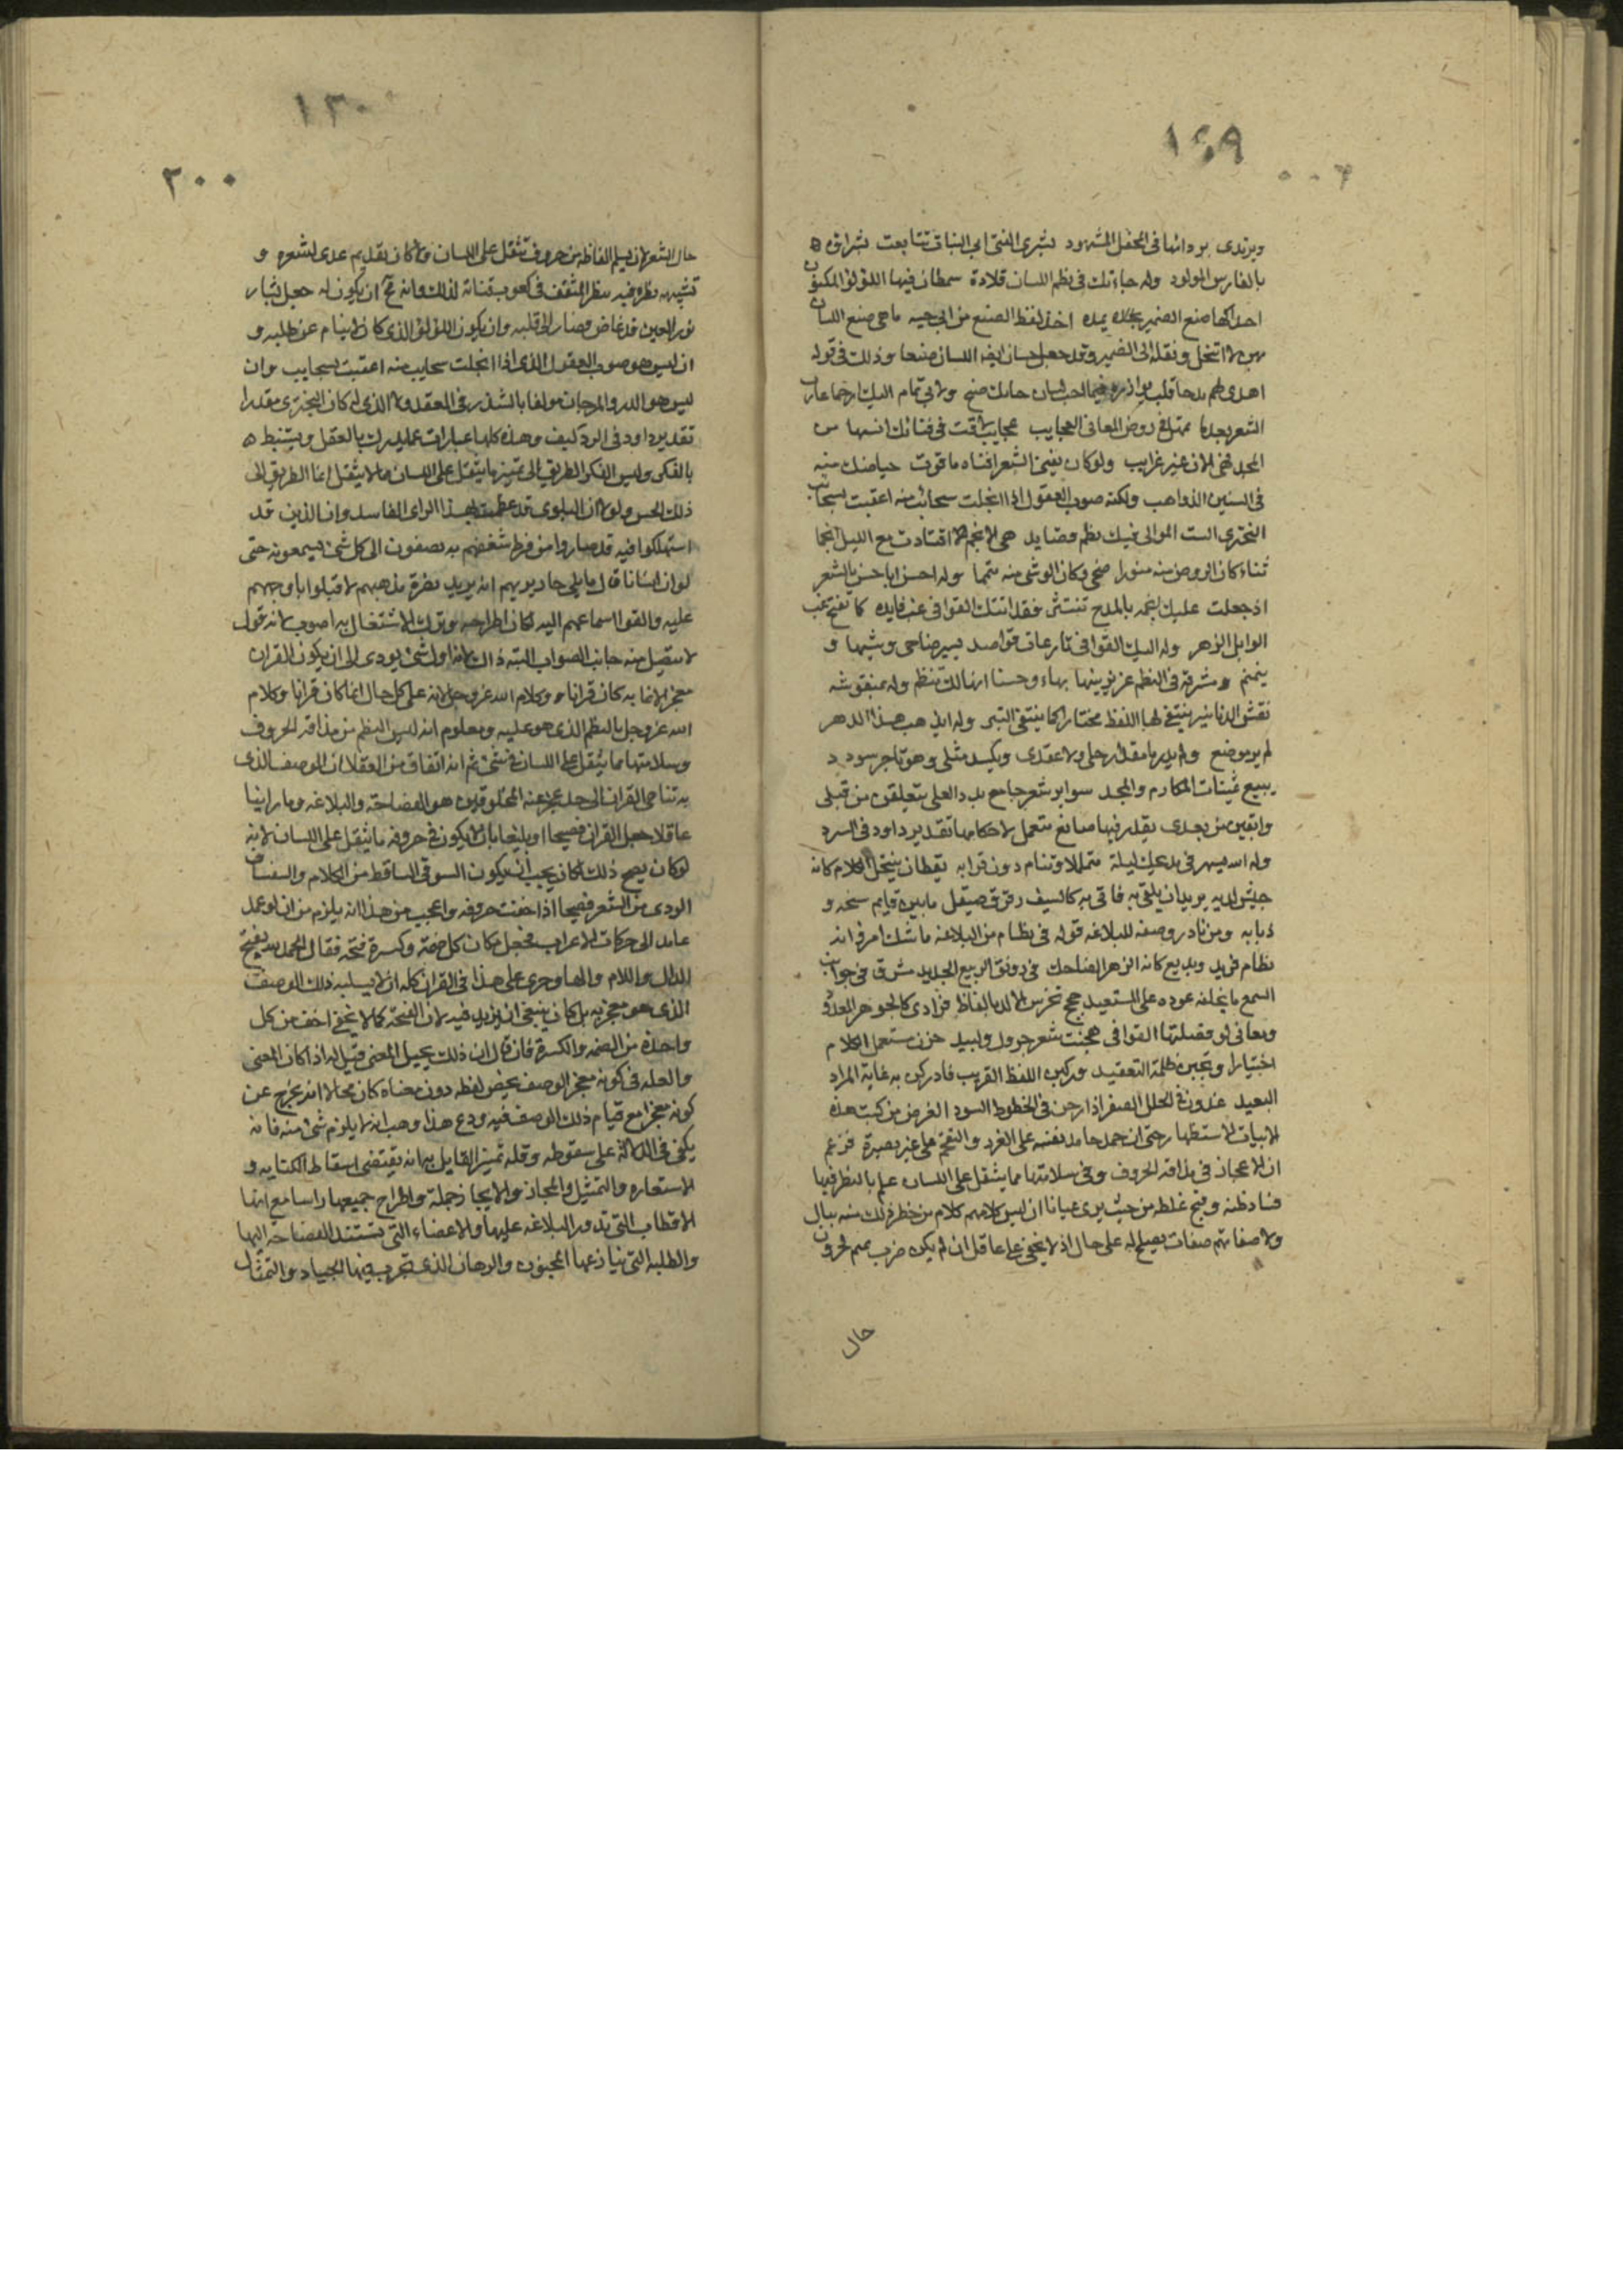 ١٢٩
ويرتدى بردائها فى المحفل المشهود بشرى الغنى ابى البنات تتابعت بشراؤه
بالفارس المولود وله جاءتك من نظم اللسان قلادة سمطان فيها اللؤلؤ المكنون
احذاكها صنع الضمير يمده اخذ لفظ الصنع من ابى حية
ونقله الى الضمير وقد جعل حسان ايضا اللسان صنعا وذلك فى قوله
اهدى لهم مدحا قلب يوازره فيما احب لسان حائك صنع ولابى تمام اليك ارحنا عازب
الشعر بعدما تمهل فى روض المعانى العجايب غرايب لاقت فى فنائك انسها من
المجد فهى الان غير غرايب ولو كان يفنى الشعر افناه ما قرت حياضك منه
فى السنين الذواهب ولكنه صوب العقول اذا انجلت سحائب منه اعقبت بسحائب
البحترى الست الموالى فيك نظم قصايد هى الانجم اقتادت مع الليل انجما
ثناء كان الروض منه منورا ضحى وكان الوشى منه منمنما وله احسن ابا حسن بالشعر
اذ جعلت عليك انجمه بالمدح تنتثر فقد اتتك القوافى غب فايده كما تفتح غب
الوابل الزهر وله اليك القوافى نازعات قواصد يسير ضاحى وشيها و
ينمنم ومشرقة فى النظم غر يزينها بهاء وحسنا انها لك تنظم وله بمنقوشة
نقش الدنانير ينتقى لها اللفظ مختارا كما ينتقى التبر وله ايذهب هذا الدهر
لم ير موضعى ولم يدر ما مقدار حلى ولا عقدى ويكسد مثلى وهو تاجر سودد
يبيع ثمينات المكارم والمجد سوابر شعر جامع بدد العلى تعلقن من قبلى
واتعبن من بعدى يقدر فيها صانع متعمل لاحكامها تقدير داود فى السرد
وله الله يسهر فى مديحك ليله متململا وتنام دون ثوابه يقظان ينتخل الكلام كانه
جيش لديه يريد ان يلقى به فاتى به كالسيف رقرق صيقل ما بين قايم سنخه و
ذبابه ومن نادر وصفه للبلاغه قوله فى نظام من البلاغه ما شك امرؤ انه
نظام فريد وبديع كانه الزهر الضاحك فى رونق الربيع الجديد مشرق فى جوانب
السمع ما يخلقه عوده على المستعيد حجج تخرس الالد بالفاظ فرادى كالجوهر المعدود
ومعانى لو فصلتها القوافى هجنت شعر جرول ولبيد حزن مستعمل الكلام
اختيارا وتجنبن ظلمة التعقيد وركبن اللفظ القريب فادركن به غاية المراد
البعيد غدون فى الحلل الصفر اذا رحن فى الخطوط السود الغرض من كتب هذه
الابيات الاستظهار حتى ان حمل حامد نفسه على الغرر والتقحم على غير بصيرة فزعم
ان الاعجاز فى مذاقه الحروف وفى سلامتها مما يثقل على اللسان علم بالنظر فيها
فساد ظنه وقبح غلطه من حيث يرى عيانا ان ليس كلامهم كلام من خطر ذلك منه ببال
ولا صفاتهم صفات يصلح له على حال اذ لا يخفى على عاقل ان لم يكن ضرب تميم لحزون
حال
١٣٠
٢٠٠
حال الشعر لان يسلم الفاظه من حروف تثقل على اللسان ولا كان تقديم عدى لشعره و
تشبيهه نظره فيه بنظر المثقف فى كعوب قناته لذلك وانه محال ان يكون له جعل بشار
نور العين قد غاض فصار الى قلبه وان يكون اللؤلؤ الذى كان لا ينام عن طلبه و
ان ليس هو صوب العقول الذى اذا انجلت سحايب منه اعقبت بسحايب وان
ليس هو الدر والمرجان مؤلفا بالشذر فى العقد ولا الذى له كان البحترى مقدرا
تقدير داود فى السرد كيف وهذه كلها عبارات عما يدرك بالعقل ويستنبط
بالفكر وليس الفكر الطريق الى تمييز ما يثقل على اللسان مما لا يثقل انما الطريق الى
ذلك الحس ولولا ان البلوى قد عظمت بهذا الراى الفاسد وان الذين قد
استهلكوا فيه قد صاروا من فرط شغفهم به يصغون الى كل شئ يسمعونه حتى
لو ان انسانا قال باقلى حار يريهم انه يريد نصرة مذهبهم لاقبلوا باوجههم
عليه والقوا اسماعهم اليه لكان اطراحه وترك الاشتغال به اصوب لانه قول
لا يتصل منه جانب الصواب البتة ذاك لانه اول شئ يودى الى ان يكون القران
معجزا لا بما به كان قرانا وكلام الله عز وجل لانه على كل حال انما كان قرانا وكلام
الله عز وجل بالنظم الذى هو عليه ومعلوم انه ليس النظم من مذاقه الحروف
وسلامتها مما يثقل على اللسان فى شئ ثم انه اتفاق من العقلا ان الوصف الذى
به تناهى القران الى حد عجز عنه المخلوقين هو الفصاحة والبلاغه وما راينا
عاقلا جعل القران فصيحا او بليغا بان لا يكون فى حروفه ما يثقل على اللسان لانه
لو كان يصح ذلك لكان يجب ان يكون السوقى الساقط من الكلام والسفساف
الردى من الشعر فصيحا اذا خفت حروفه واعجب من هذا انه يلزم منه ان لو عمد
عامد الى حركات الاعراب فجعل مكان كل ضمة وكسرة فتحه فقال الحمد لله بفتح
الدال واللام والهاء وجرى على هذا فى القران كله ان لا يسلبه ذلك الوصف
الذى هو معجز به بل كان ينبغى ان يزيد فيه لان الفتحة كما لا يخفى اخف من كل
واحدة من الضمه والكسرة فان قال ان ذلك يحيل المعنى قيل له اذا كان المعنى
والعلة فى كونه معجز الوصف يخص لفظه دون معناه كان محالا ان يخرج عن
كونه معجزا مع قيام ذلك الوصف فيه ودع هذا وهب انه لا يلزم شئ منه فانه
يكفى فى الدلالة على سقوطه وقله تمييز القايل به انه يقتضى اسقاط الكنايه و
الاستعاره والتمثيل والمجاز والايجاز جملة واطراح جميعها راسا مع انها
الاقطاب التى تدور البلاغه عليها والاعضاء التى تستند الفصاحة اليها
والطلبه التى يتنازعها المحسنون والرهان الذى تجرب فيها الجياد والنضال